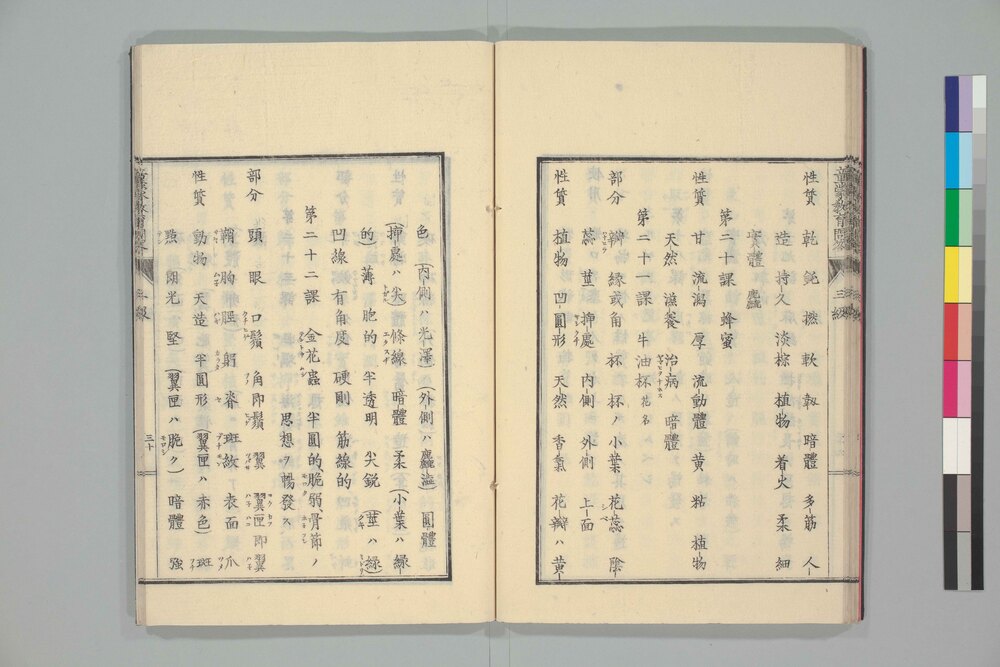 性質 乾 鈍 撚 軟 靱 暗體 多筋 人
造 持久 淡棕 植物 着火 柔 細
實體 麤
第二十課 蜂蜜
性質 甘 流瀉 厚 流動體 黄 粘 植物
天然 滋養 治病 暗體
第二十一課 牛油杯 花名
部分 瓣 縁或角 杯 杯ノ小葉 花蕊 陰
蕊 莖 挿處 内側 外側 上面
性質 植物 凹 圓形 天然 香氣 花瓣ハ黄
色 (内側ハ光澤)(外側ハ麤澁) 圓體
(挿處ハ尖 條線 暗體 柔 (小葉ハ緑
的) 薄 胞的 半透明 尖鋭 (莖ハ緑)
凹線 有角度 硬剛 筋線的
第二十二課 金花蟲 半圓的、脆弱、骨節ノ
思想ヲ暢發ス
部分 頭 眼 口鬚 角即鬚 翼 翼匣即翼
鞘 胸 脛 躬 脊 斑紋 表面 爪
性質 動物 天造 半圓形 (翼匣ハ赤色) 斑
點 朗光 堅 (翼匣ハ脆ク) 暗體 強
三級
三十